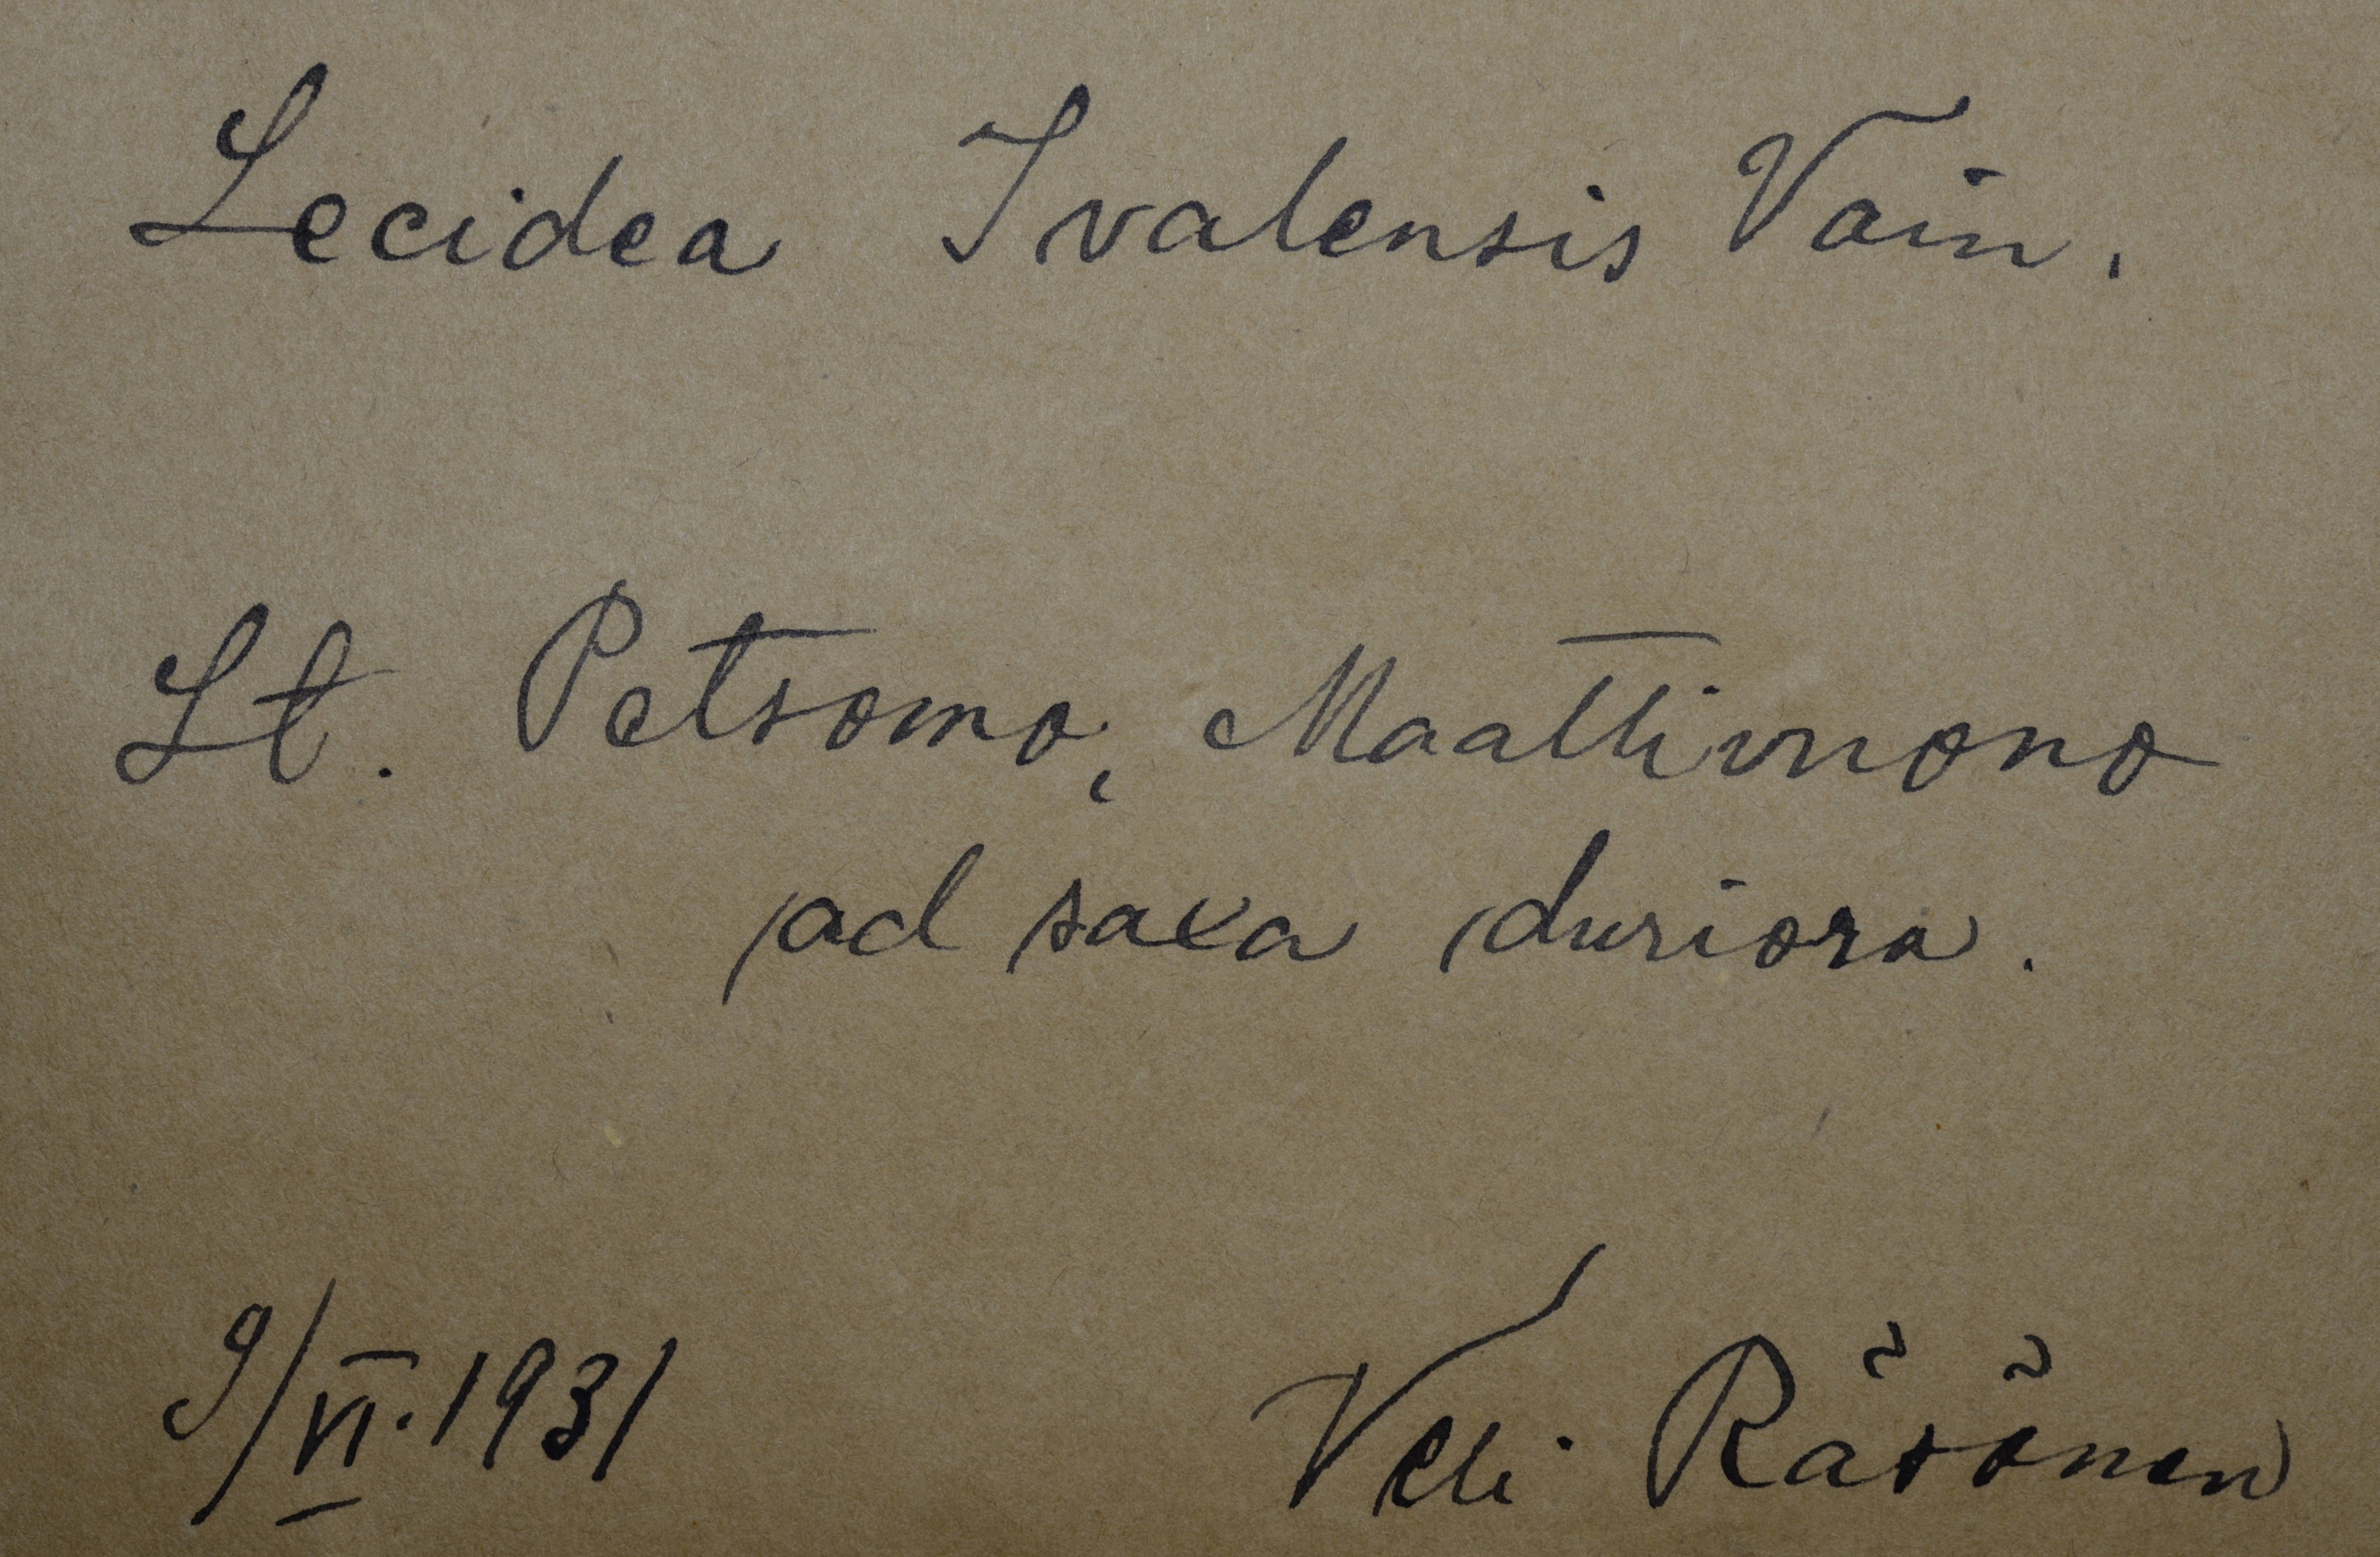 Lecidea Ivalensis Vain.
Lt. Petsamo, Maattivuono
ad saxa duriora.
9/VI.1931
Veli Räsänen